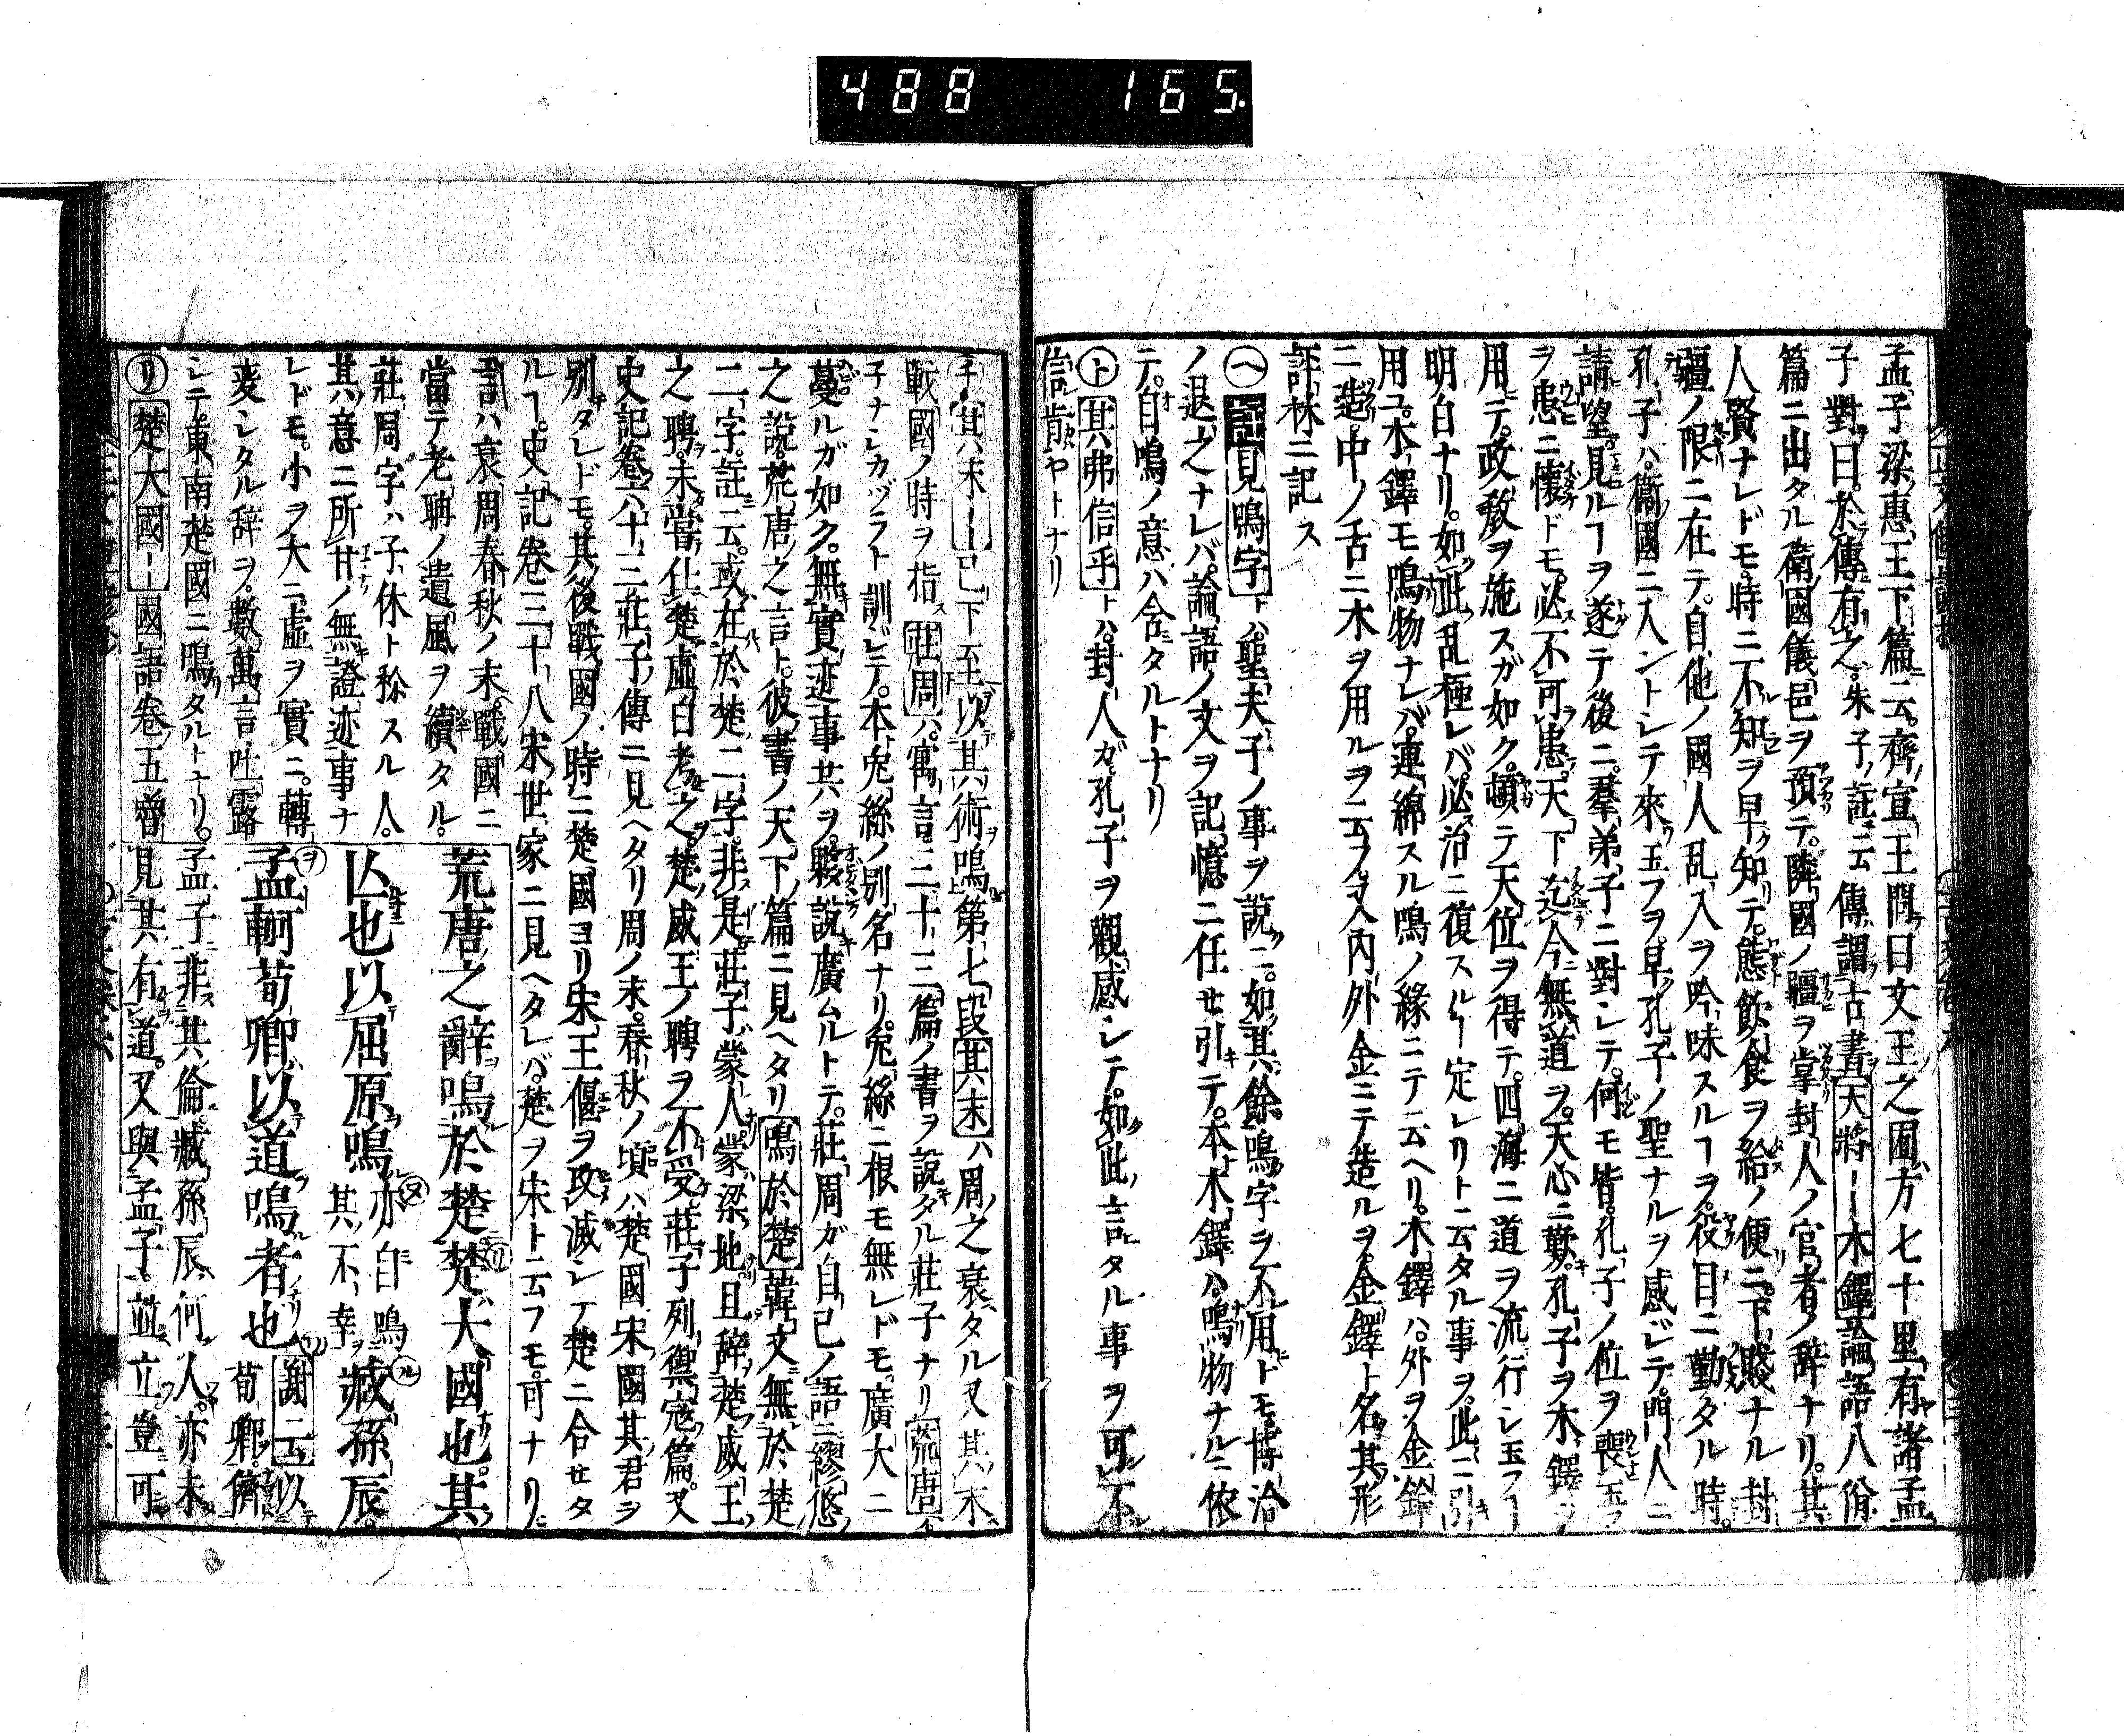 488 165
孟子梁惠王下篇云齊宣王問曰文王之囿方七十里有諸孟
子對曰於傳有之朱子註云傳謂古書天將――木鐸論語八佾
篇ニ出タル衛國儀邑ヲ預テ隣國ノ疆ヲ掌封人ノ官者ノ辞ナリ其
人賢ナレドモ時ニ不知ヲ早知テ態飲食ヲ給ノ便ニ下賤ナル封
疆ノ限ニ在テ自他ノ國人乱入ヲ吟味スルヿヲ役目ニ勤タル時
孔子ハ衛國ニ入ントシテ來玉フヲ早孔子ノ聖ナルヲ感ジテ門人ニ
請望見ルヿヲ遂テ後ニ羣弟子ニ對シテ何モ皆孔子ノ位ヲ喪玉フ
ヲ患ニ懐ドモ必不可患天下迄今無道ヲ天心ニ歎孔子ヲ木鐸ニ
用テ政教ヲ施スガ如ク頓テ天位ヲ得テ四海ニ道ヲ流行シ玉フヿ
明白ナリ如此乱極レバ必治ニ復スルヿ定レリト云タル事ヲ此ニ引
用ユ木鐸モ鳴物ナレバ連綿スル鳴ノ緣ニテ云ヘリ木鐸ハ外ヲ金鈴
ニ造中ノ舌ニ木ヲ用ルヲ云フ又內外金ニテ造ルヲ金鐸ト名其形
評林ニ記ス
ヘ 見鳴字トハ聖夫子ノ事ヲ說ニ如其餘鳴字ヲ不用トモ博洽
ノ退之ナレバ論語ノ文ヲ記憶ニ任セ引テ本木鐸ハ鳴物ナルニ依
テ自鳴ノ意ハ含タルトナリ
ト 其弗信乎トハ封人ガ孔子ヲ觀感シテ如此言タル事ヲ可不
信肯ヤトナリ
チ 其末――已下至以其術鳴第七段其末ハ周之衰タル又其末
戰國ノ時ヲ指 莊周ハ寓言三十三篇ノ書ヲ說タル莊子ナリ 荒唐ハ
子ナシカヅラト訓ジテ本兎絲ノ別名ナリ兎絲ニ根モ無レドモ廣大ニ
蔓ルガ如ク無實迹事共ヲ說廣ムルトテ莊周ガ自己ノ語ニ繆悠
之說荒唐之言ト彼書ノ天下ノ篇ニ見ヘタリ 鳴於楚韓文無於楚
二字註云或在於楚二字非是莊子蒙人蒙梁地且辞楚威王
之聘未嘗仕楚虛白考之楚威王ノ聘ヲ不受莊子列禦寇篇又
史記卷六十三莊子傳ニ見ヘタリ周ノ末春秋ノ頃ハ楚國宋國其君ヲ
別タレドモ其後戰國ノ時ニ楚國ヨリ宋王偃ヲ攻滅シテ楚ニ合セタ
ルヿ史記卷三十八宋世家ニ見ヘタレバ楚ヲ宋ト云フモ可ナリ
言ハ衰周春秋ノ末戰國ニ
當テ老聃ノ遺風ヲ續タル
莊周字ハ子休ト称スル人
其意ニ所甘ノ無證迹事ナ
レドモ小ヲ大ニ虛ヲ實ニ轉
変シタル辞ヲ數萬言吐露
シテ東南楚國ニ鳴タルトナリ
リ 楚大國――國語卷五
荒唐之辭鳴於楚リ楚大國也其
亾也以屈原鳴ヌ亦自鳴其不幸ル臧孫辰
ヲ孟軻荀卿以道鳴者也ワ謝云以荀卿儕
孟子非其倫臧孫辰何人亦未
見其有道又與孟子並立豈可